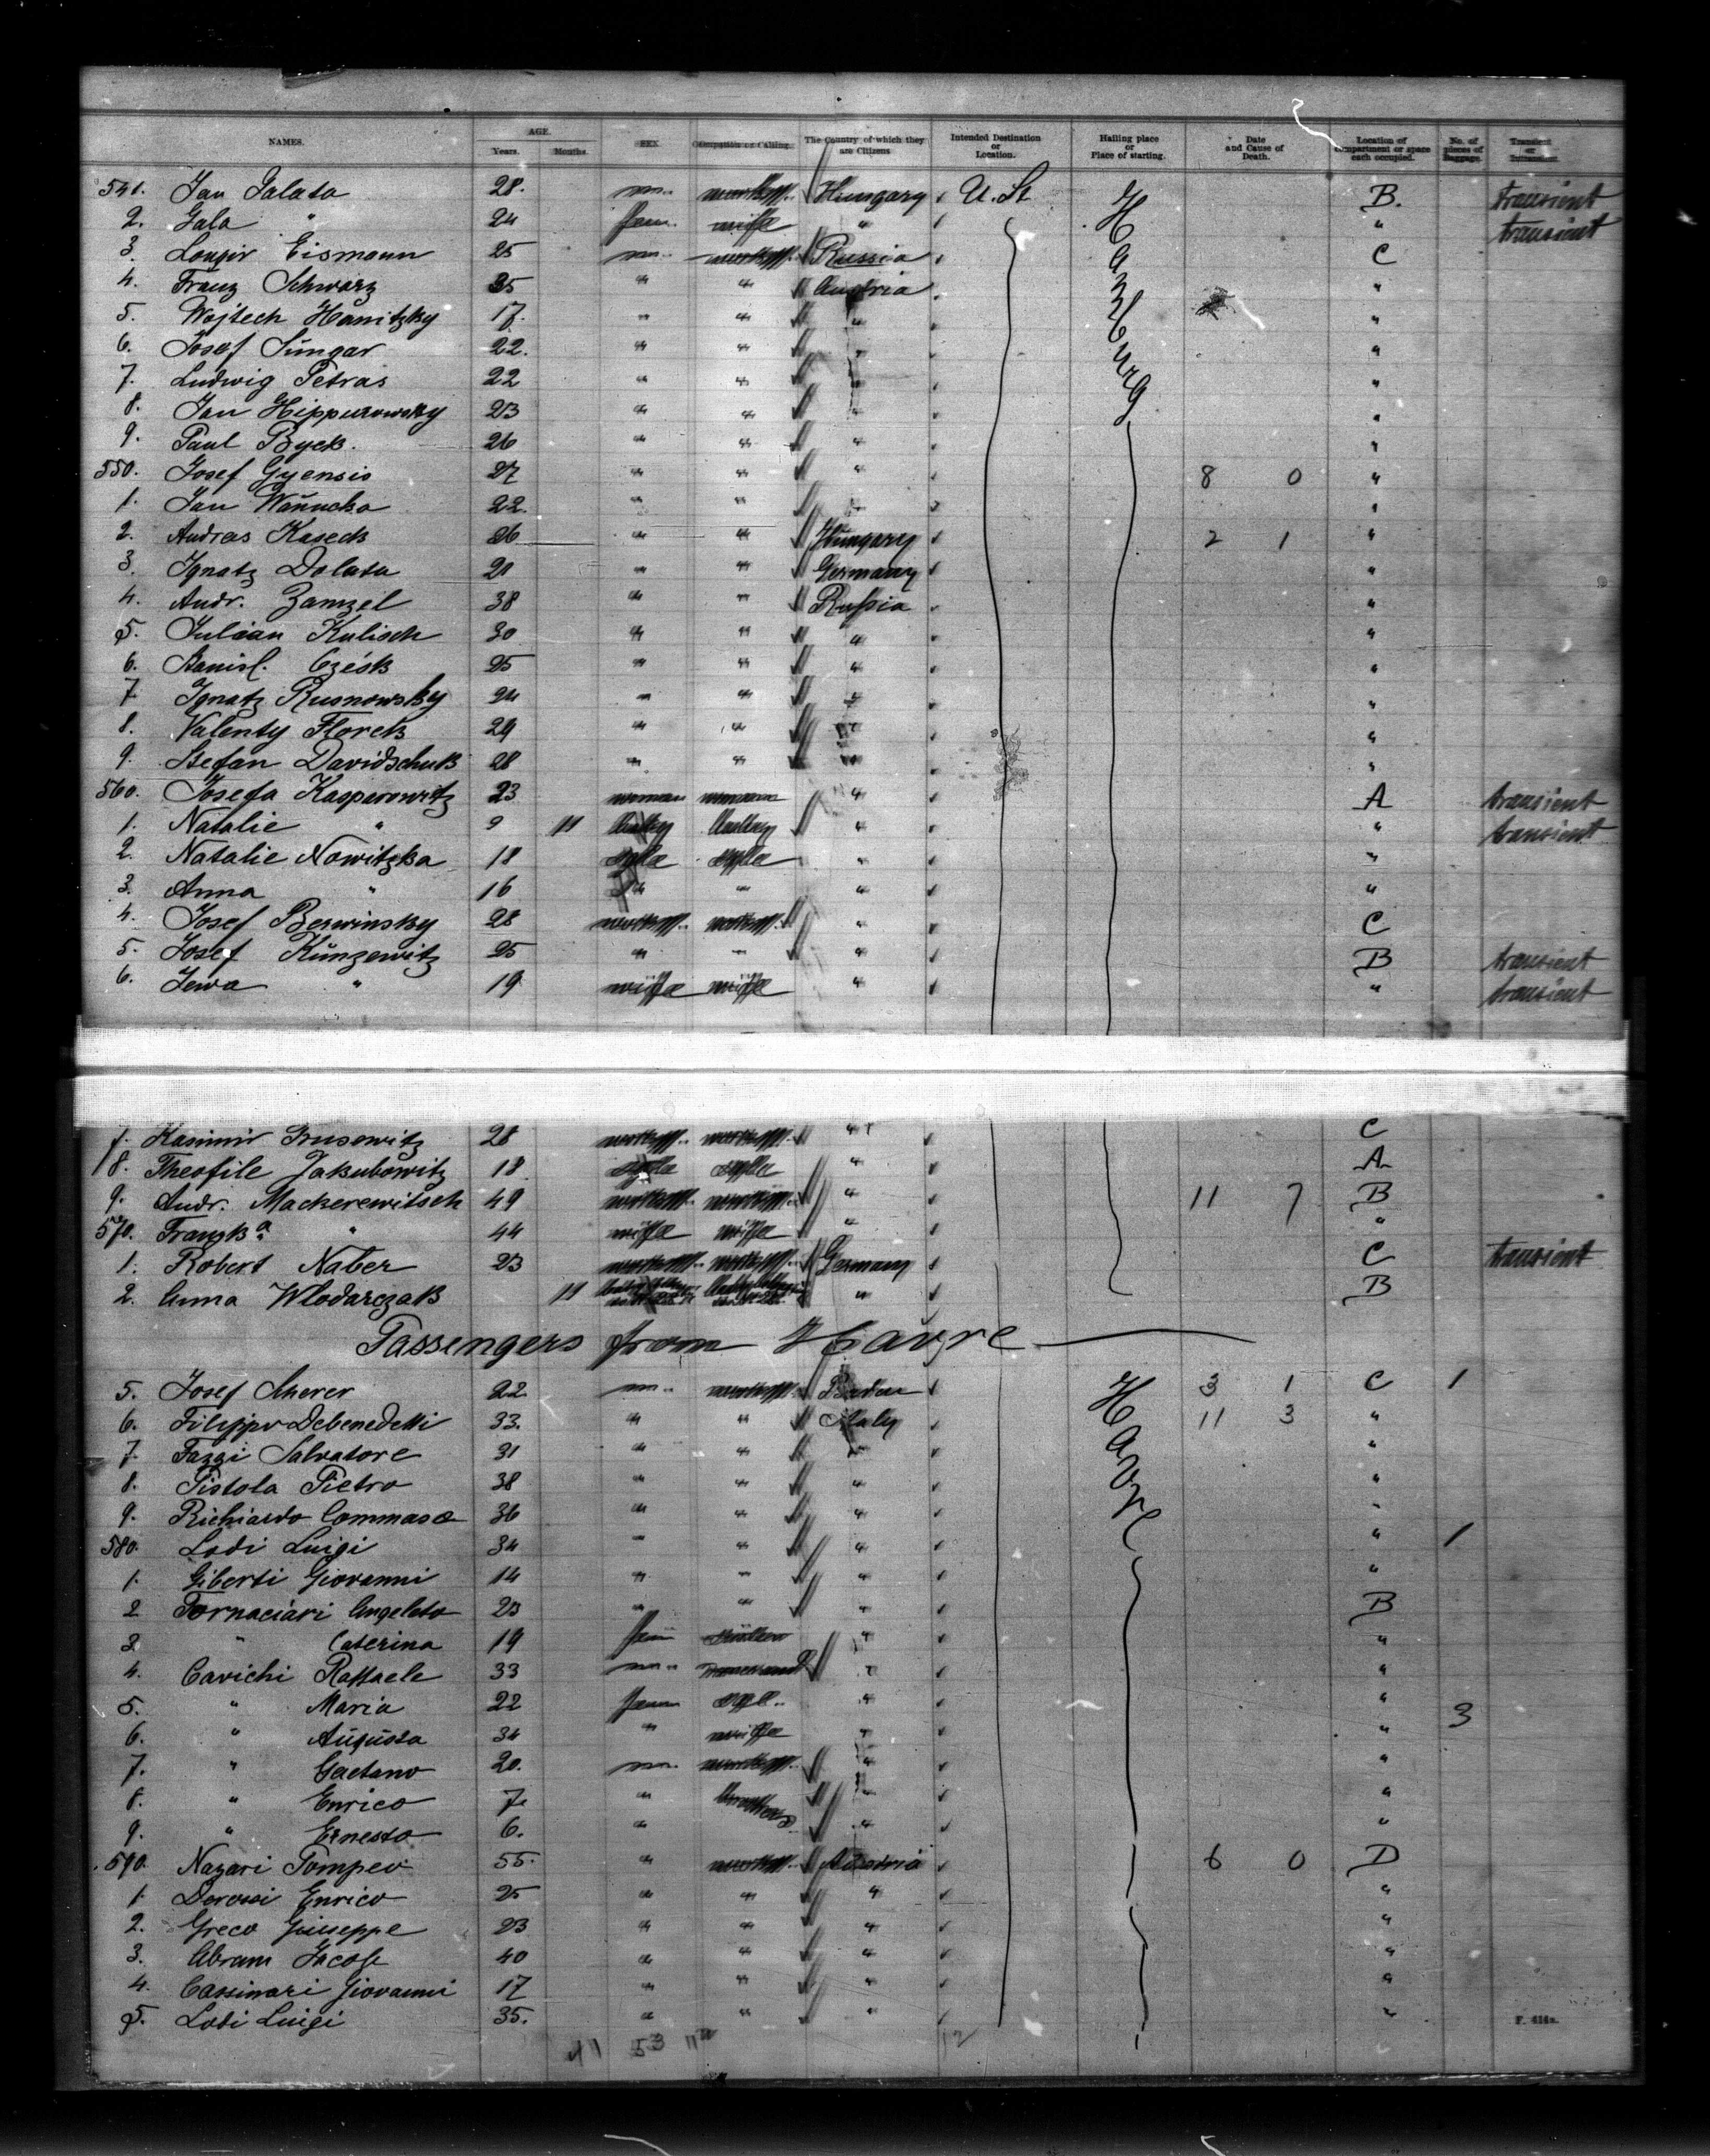 NAMES. AGE. Years. Months. SEX. Occupation or Calling. The Country of which they are Citizens Intended Destination or Location. Hailing place or Place of starting. Date and Cause of Death. Location of compartment or space each occupied. No. of pieces of Baggage. Transient or
541. Jan Palata 28. m. Hungary U. St Hamburg B. transient
2. Gala " 24 fem. wiffe " " transient
3. Eismann 25 m. Russia C
4. Franz Schwarz 35 " " Austria "
5. Wojtech Hanitzky 17. " " " "
6. Josef Sŭngar 22. " " " "
7. Ludwig Petras 22 " " " "
8. Jan Hippurowsky 23 " " " "
9. Paul Byck. 26 " " " "
550. Josef Gyensis 27 " " " 8 0 "
1. Jan 22. " " " "
2. Andreas Kaseck 26 " " Hungary 2 1 "
3. Ignatz Dolata 21 " " Germany "
4. Andr. Zamzel 38 " " Russia "
5. Julian Kulisch 30 " " " "
6. Stanisl. 25 " " " "
7 Ignatz Rusnowsky 24 " " " "
8. Valenty Florek 29 " " " "
9. Stefan Davidschuk 28 " " " "
560. Josefa Kasparowitz 23 woman woman " A transient
1. Natalie " 9 11 " " transient
2. Natalie Nowitzka 18 " "
3. Anna " 16 " " "
4. Josef Berwinsky 28 " C
5. Josef Kŭnzewitz 25 " " " B transient
6. Jewa " 19 wiffe wiffe " " transient
7. Kasimir Grusewitz 28 " C
18. Theofile Jakubowitz 18 " A
9. Andr. Mackerewitsch 49 " 11 7 B
570. Franzka " 44 wiffe wiffe " "
1. Robert Naber 23 Germany C transient
2. Anna Wlodarczak 11 " B
Passengers from Havre
5. Josef Sherer 22 m. Baden Havre 3 1 C 1
6. Filippo Debenedetti 33. " " Italy 11 3 "
7. Fazzi Salvatore 31 " " " "
8. Pistola Pietro 38 " " " "
9. Richiardo Commasa 36 " " " "
580. Lodi Luigi 34 " " " " 1
1. Giberti Giovanni 14 " " " "
2 Fornaciari Angelato 23 " " " B
3 " Caterina 19 fem " "
4. Cavichi Raffaele 33 m. " "
5. " Maria 22 fem " " 3
6. " Aŭgŭsta 34 " wiffe " "
7. " Gaetano 20. m. " "
8. " Enrico 7. " " "
9. " Ernesto 6. " " "
590. Nazari Pompeo 55. " Austria 6 0 D
1. Derossi Enrico 25 " " " "
2. Greco Giuseppe 23 " " " "
3. Abram Jacob 40 " " " "
4. Cassinari Giovanni 17 " " " "
5. Lodi Luigi 35. " " " "
F. 414a.
41 53 12